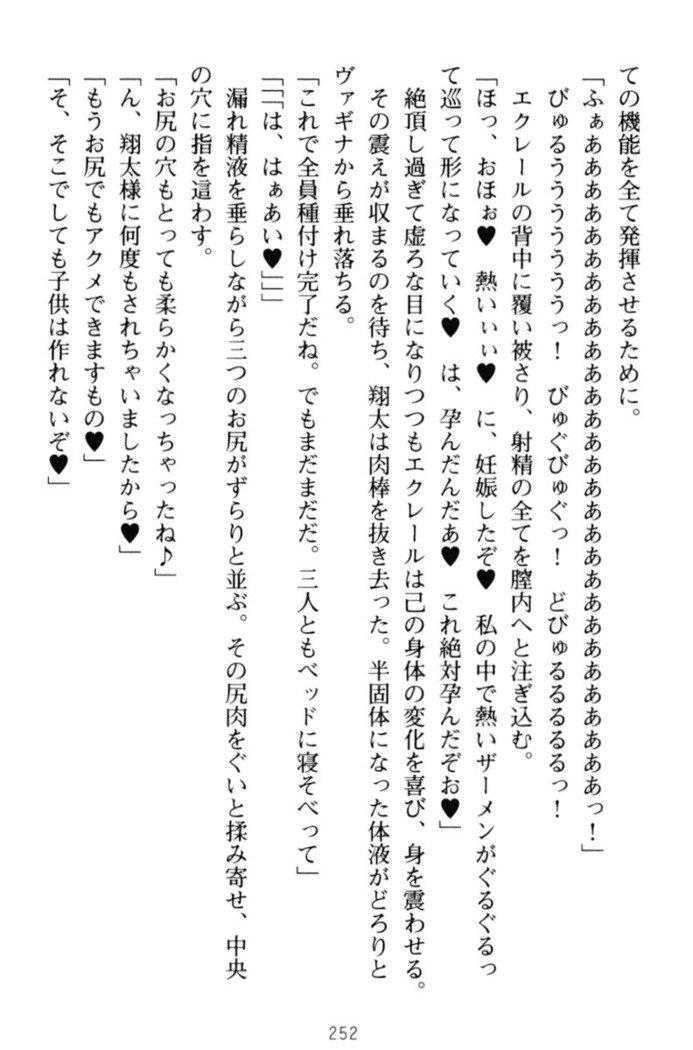 ての機能を全て発揮させるために。
「ふぁああああああああああああああああああああああああああああああああっ！」
びゅるううううううううっ！　びゅぐびゅぐっ！　どびゅるるるるるっ！
エクレールの背中に覆い被さり、射精の全てを膣内へと注ぎ込む。
「ほっ、おほぉ♥　熱いぃぃ♥　に、妊娠したぞ♥　私の中で熱いザーメンがぐるぐるっ
て巡って形になっていく♥　は、孕んだんだあ♥　これ絶対孕んだぞお♥」
絶頂し過ぎて虚ろな目になりつつもエクレールは己の身体の変化を喜び、身を震わせる。
その震えが収まるのを待ち、翔太は肉棒を抜き去った。半固体になった体液がどろりと
ヴァギナから垂れ落ちる。
「これで全員種付け完了だね。でもまだまだだ。三人ともベッドに寝そべって」
「「「は、はぁあい♥」」」
漏れ精液を垂らしながら三つのお尻がずらりと並ぶ。その尻肉をぐいと揉み寄せ、中央
の穴に指を這わす。
「お尻の穴もとっても柔らかくなっちゃったね♪」
「ん、翔太様に何度もされちゃいましたから♥」
「もうお尻でもアクメできますもの♥」
「そ、そこでしても子供は作れないぞ♥」
252